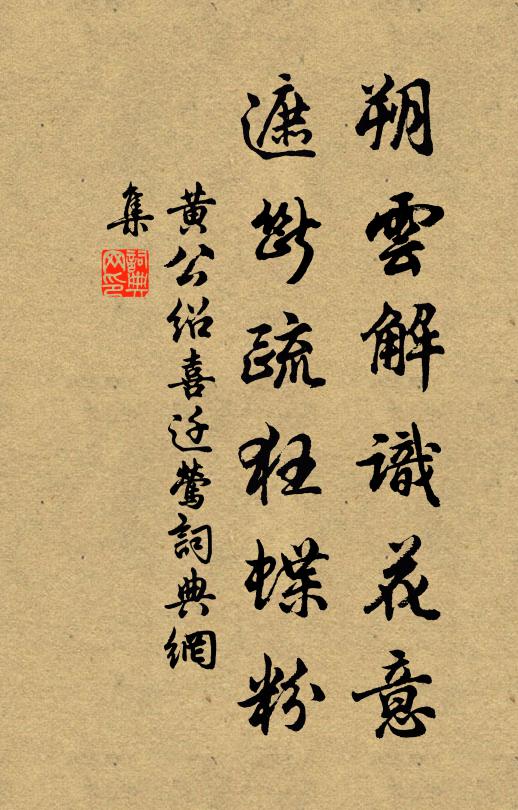 朔雲解識花意
遮斷疏狂蝶粉
黃公紹喜迁鶯詞典網
集
詞典
网印